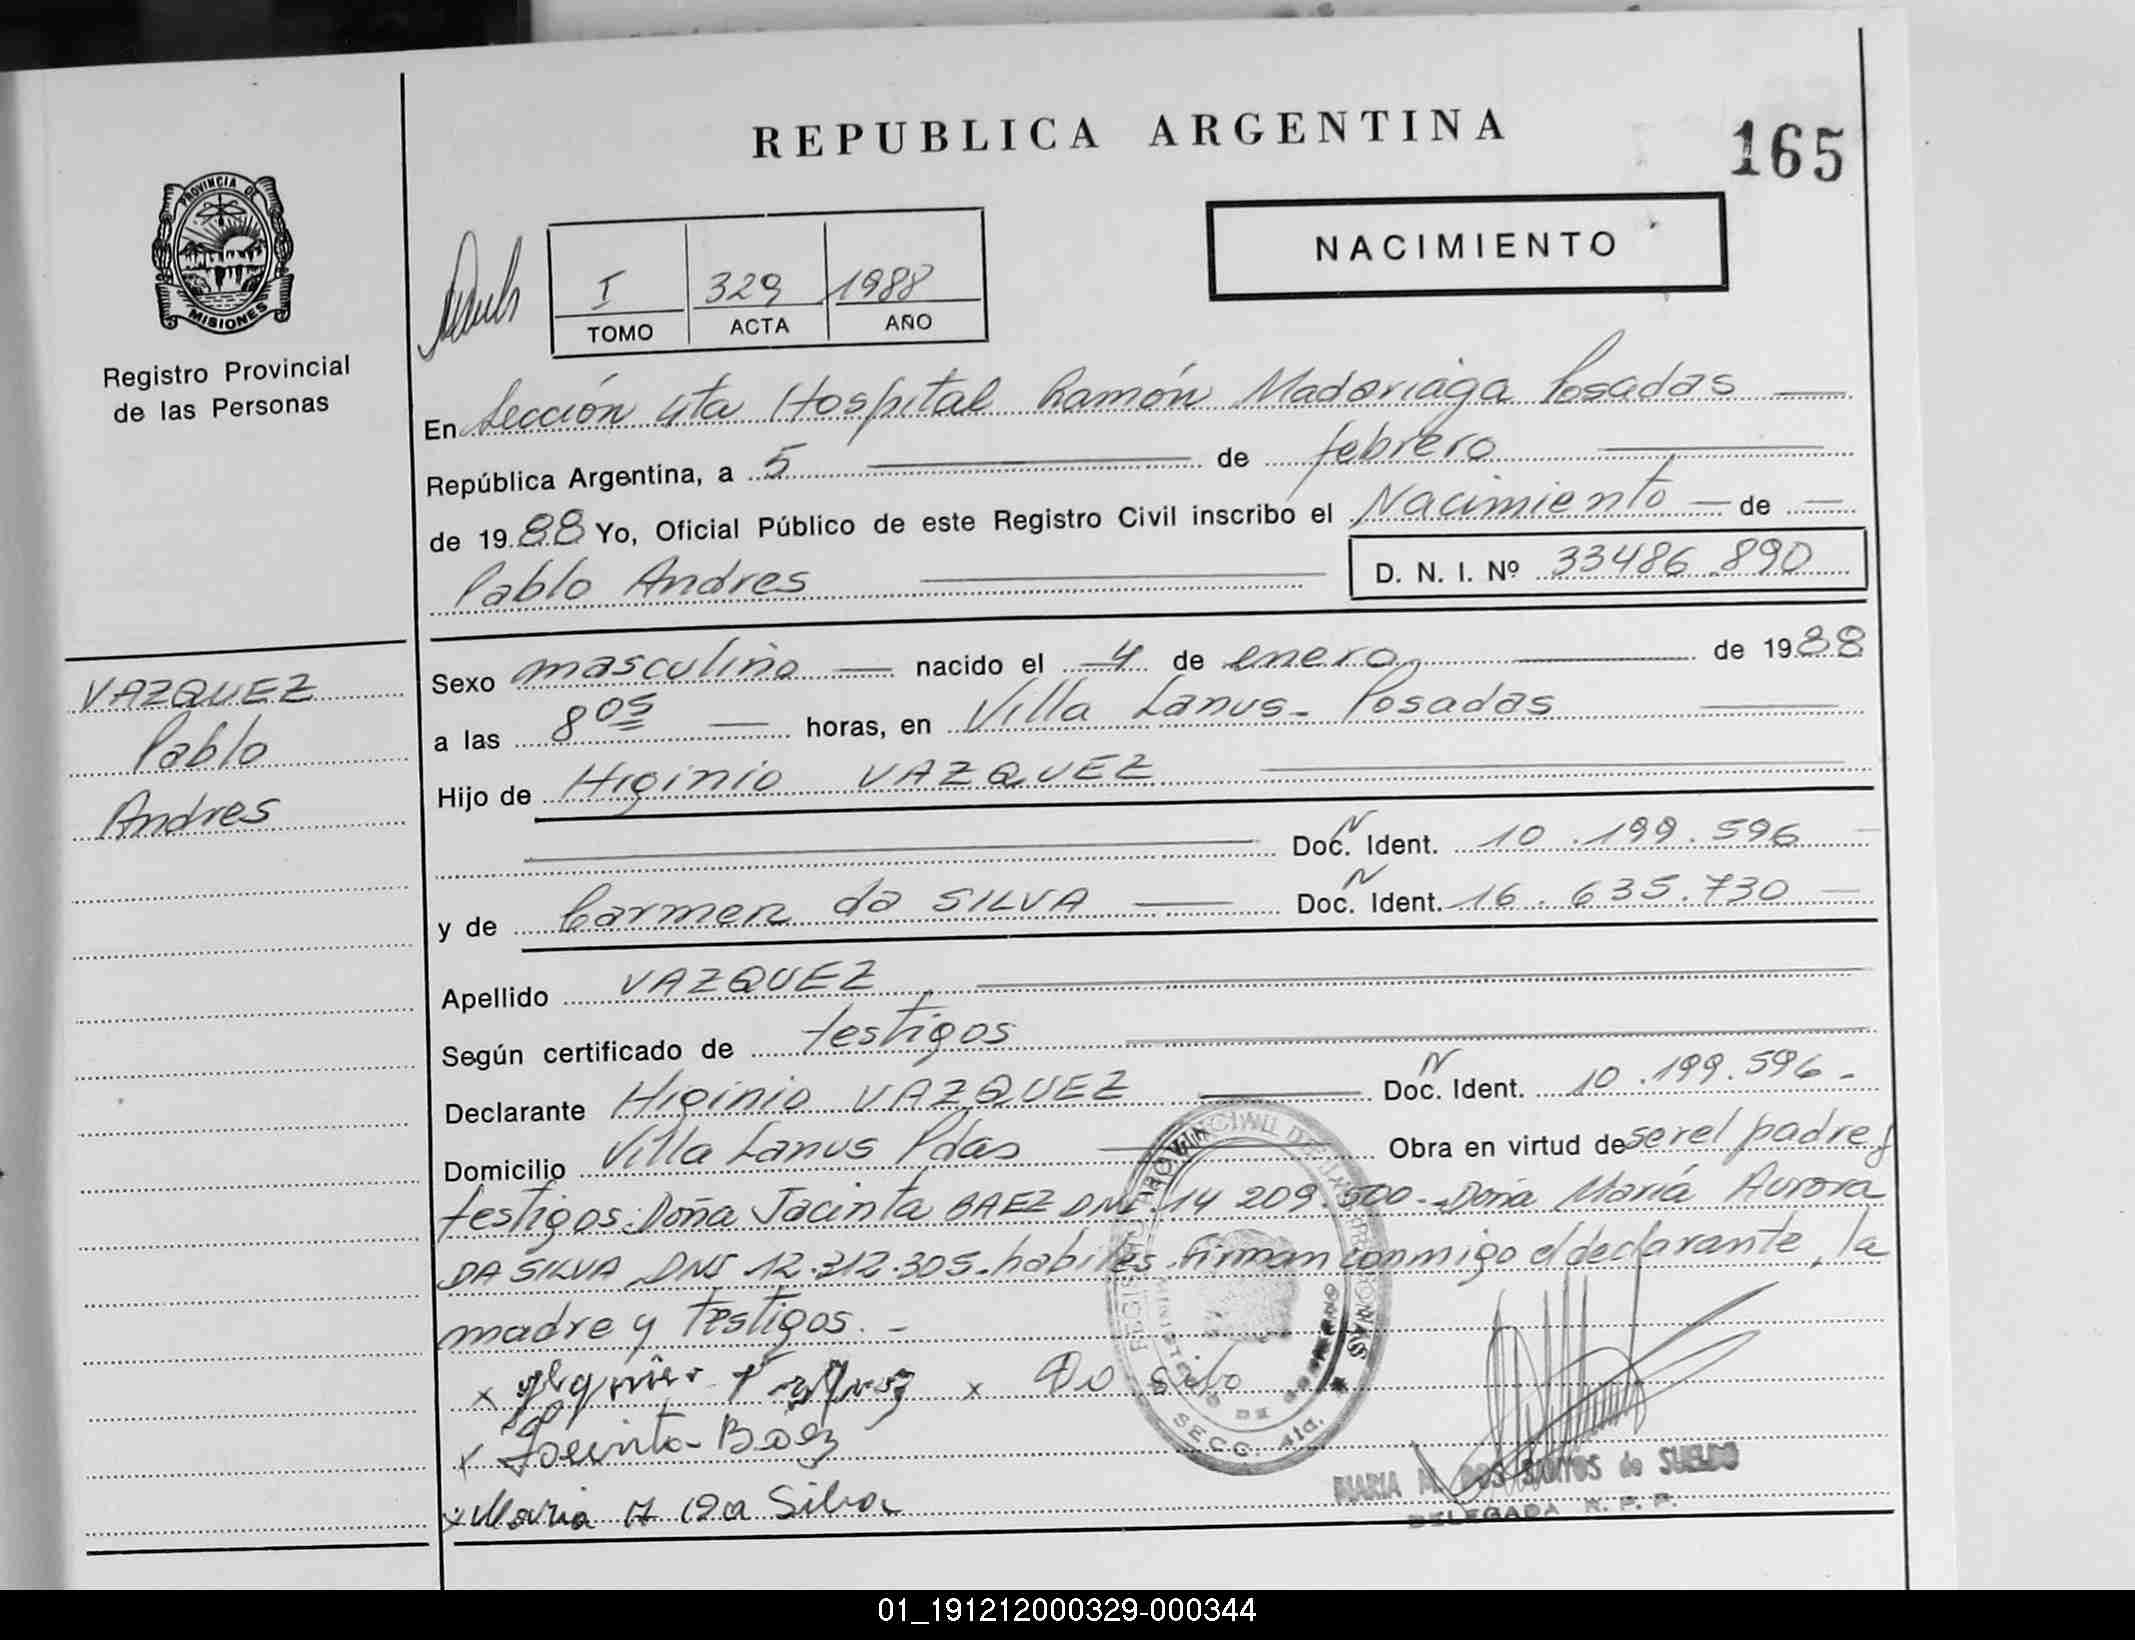 REPUBLICA ARGENTINA
165
PROVINCIA DE
MISIONES
Registro Provincial
de las Personas
NACIMIENTO
I 329 1988
TOMO ACTA AÑO
En Sección 4ta Hospital Ramón Madariaga Posadas
República Argentina, a 5 de febrero
de 1988 Yo, Oficial Público de este Registro Civil inscribo el Nacimiento de
Pablo Andres D. N. I. Nº 33486.890
VAZQUEZ
Pablo
Andres
Sexo masculino nacido el 4 de enero de 1988
a las 8 05 horas, en Villa Lanus - Posadas
Hijo de Higinio VAZQUEZ
N
Doc. Ident. 10.199.596
N
y de Carmen da SILVA Doc. Ident. 16.635.730
Apellido VAZQUEZ
Según certificado de testigos
N
Declarante Higinio VAZQUEZ Doc. Ident. 10.199.596.-
Domicilio Villa Lanus Pdas Obra en virtud de ser el padre y
testigos: Doña Jacinta BAEZ DNI. 14 209.500.- Doña María Aurora
DA SILVA DNI 12.212.305. habiles firman conmigo el declarante, la
madre y testigos. -
x x Da Silva
x Jacinta Baez
x Maria A Da Silva
SECC. 4ta.
MARIA M. DOS SANTOS de SUELDO
DELEGADA R. P. P.
01_191212000329-000344